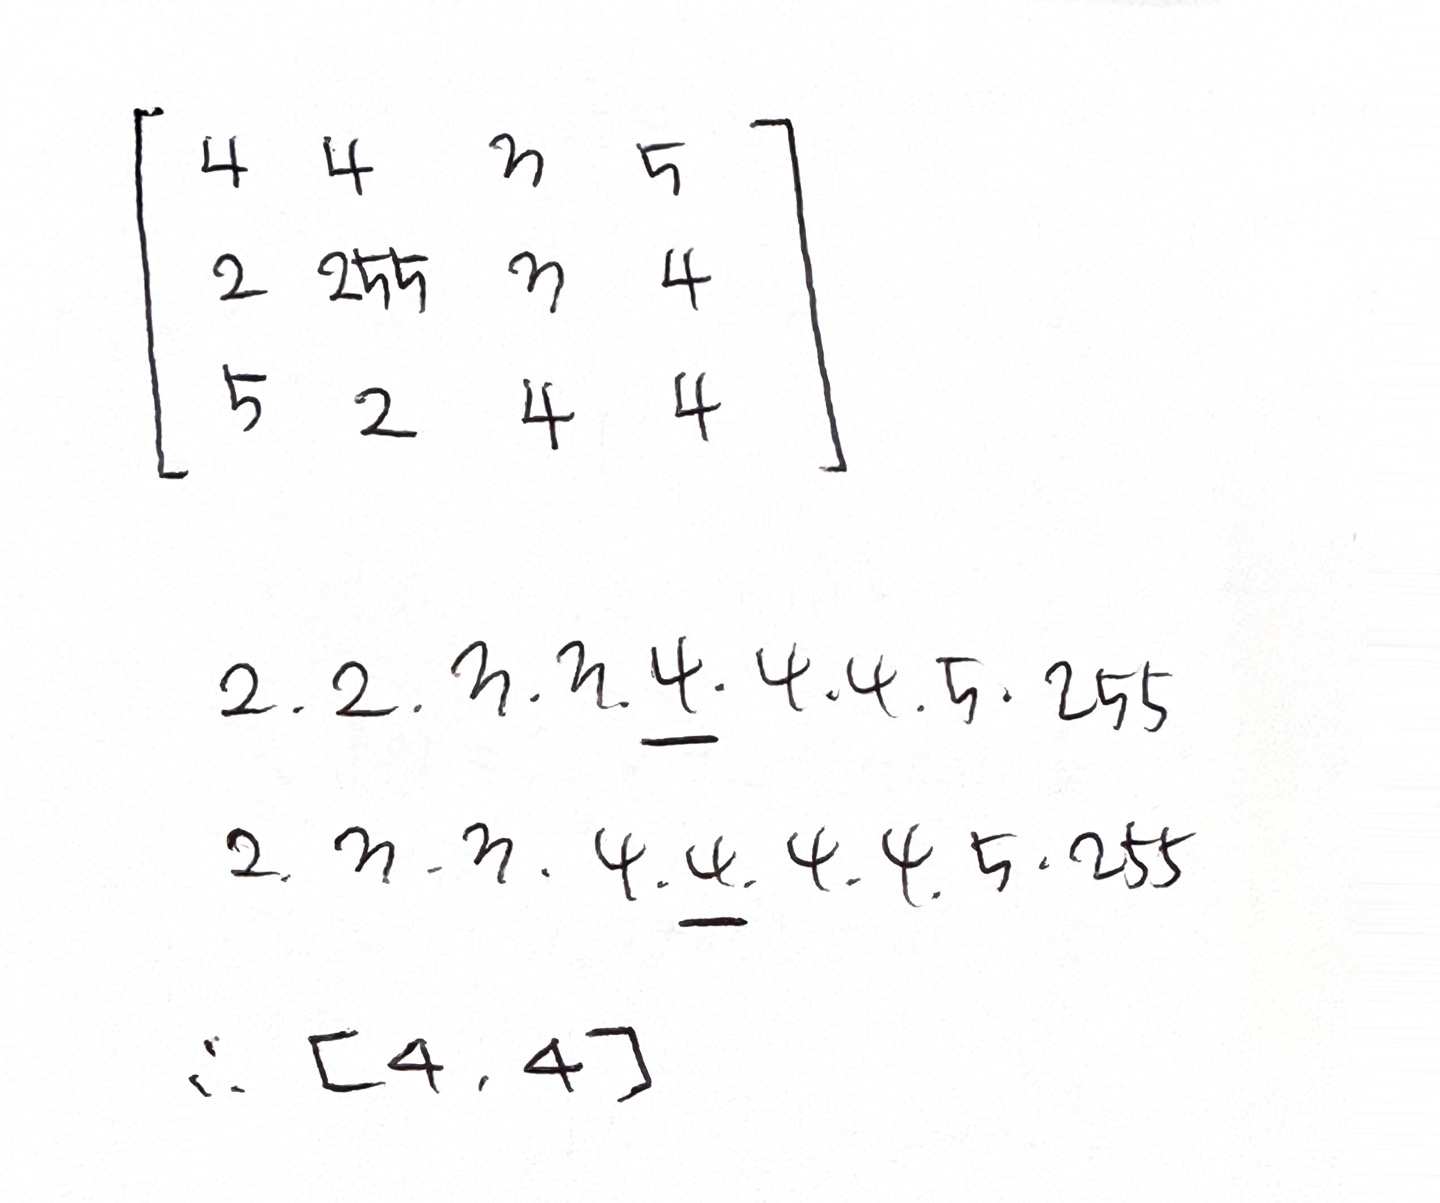 4 4 n 5
2 255 n 4
5 2 4 4
2. 2. n. n. 4. 4. 4. 5. 255
2. n. n. 4. 4. 4. 4. 5. 255
∴ [4, 4]